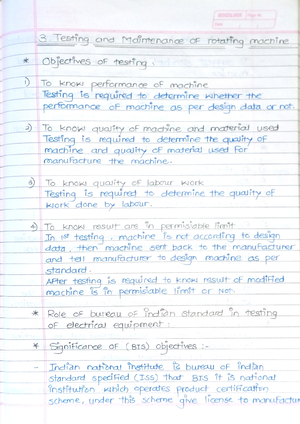 3. Testing and Maintenance of rotating machine
* Objectives of testing
1) To know performance of machine
Testing is required to determine whether the
performance of machine as per design data or not.
2) To know quality of machine and material used
Testing is required to determine the quality of
machine and quality of material used for
manufacture the machine.
3) To know quality of labour work
Testing is required to determine the quality of
work done by labour.
4) To know result are in permisiable limit
In 1st testing, machine is not according to design
data, then machine sent back to the manufacturer
and tell manufacturer to design machine as per
standard.
After testing is required to know result of modified
machine is in permisiable limit or Not.
* Role of bureau of indian Standard in testing
of electrical equipment:
* Significance of (BIS) objectives :-
- Indian national institute is bureau of indian
standard specified (ISS) that BIS it is national
institution which operates product certification
scheme, under this scheme give license to manufactur